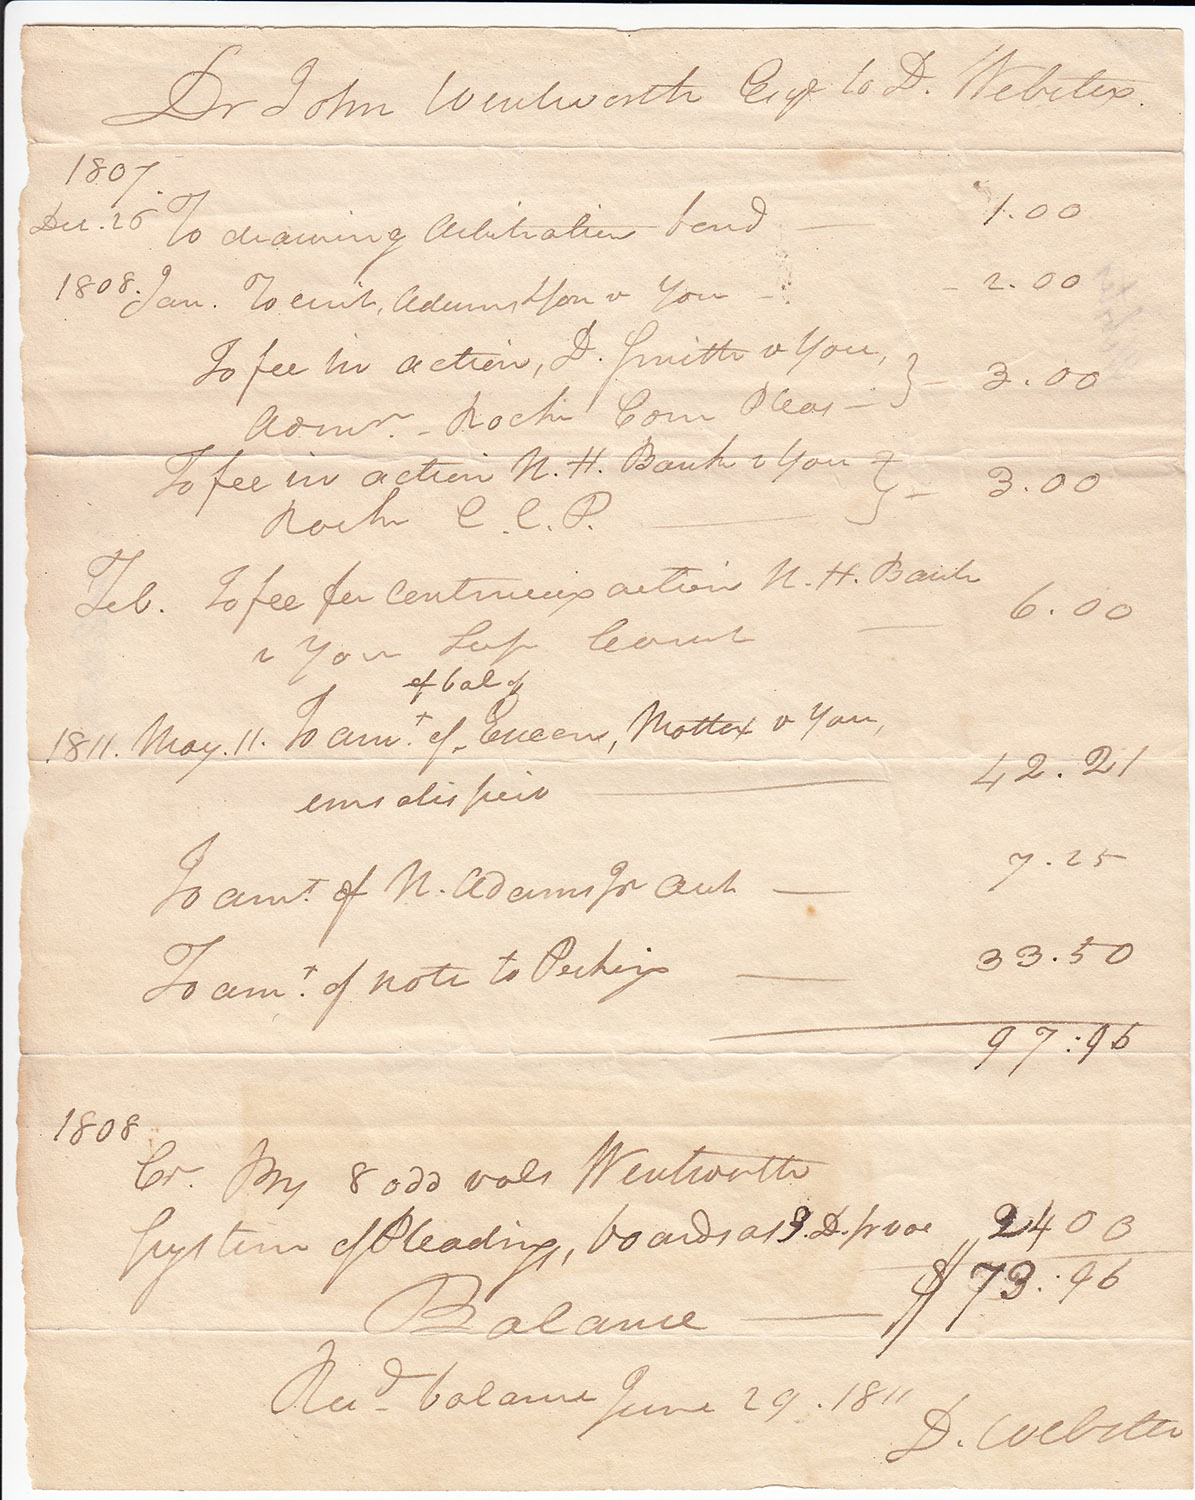 Dr John Wentworth Esqr to D. Webster.
1807
Dec. 26 To drawing Arbitration bond 1.00
1808. Jan. To writ, Adams & you 2.00
To fee in action, D. Smith v You, 3.00
Admr. - Rockm Com Pleas
To fee in action N. H. Bank v You 3.00
Rockm C. C. P.
Feb. To fee for continuing action N. H. Bank 6.00
v You Sup Court
of bal of
1811. May. 11. To amt. of Execon, v You, 42.21
To amt. of N. Adams Jr 7.25
To amt. of note to Perkins 33.50
97:96
1808
Cr. By 8 odd vols Wentworth
System of Pleading, boards as 3. D. pr vol 2400
$73:96
Balance
Recd balance June 29. 1811
D. Webster